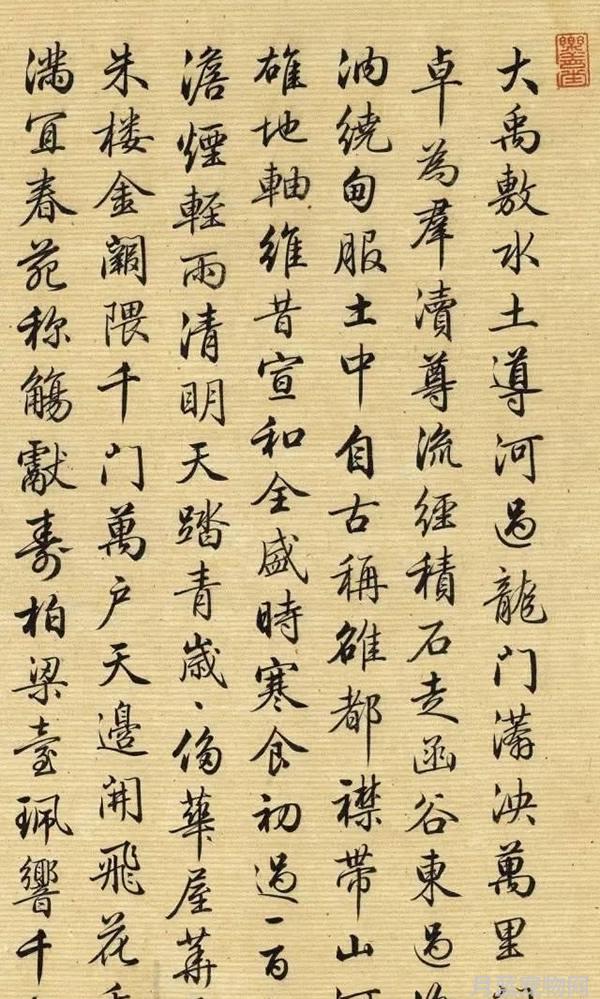 大禹敷水土導河過龍門滿泱萬里
卓為羣瀆尊流經積石走函谷東過
汭繞甸服土中自古稱雄都襟帶山河
雄地軸維昔宣和全盛時寒食初過一百
澹煙輕雨清明天踏青歲〻傷華屋
朱楼金闕隈千门萬户天邉開飛花
滿宜春苑称觴獻壽柏梁臺珮響千
樂善堂